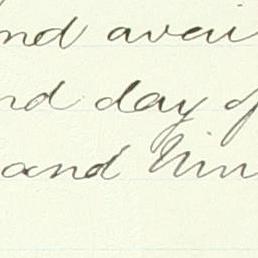 and avai
nd day of
and Nin